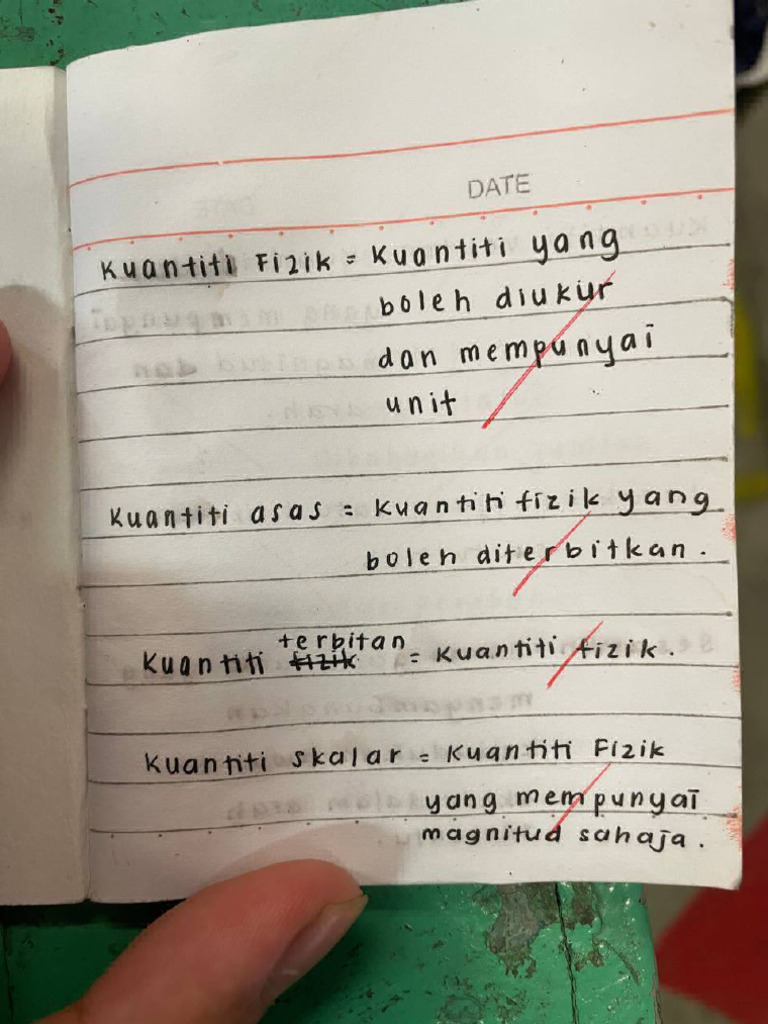 DATE
Kuantiti Fizik = Kuantiti yang
boleh diukur
dan mempunyai
unit
Kuantiti asas = Kuantiti fizik yang
boleh diterbitkan.
terbitan
Kuantiti fizik = Kuantiti fizik.
Kuantiti skalar = Kuantiti Fizik
yang mempunyai
magnitud sahaja.